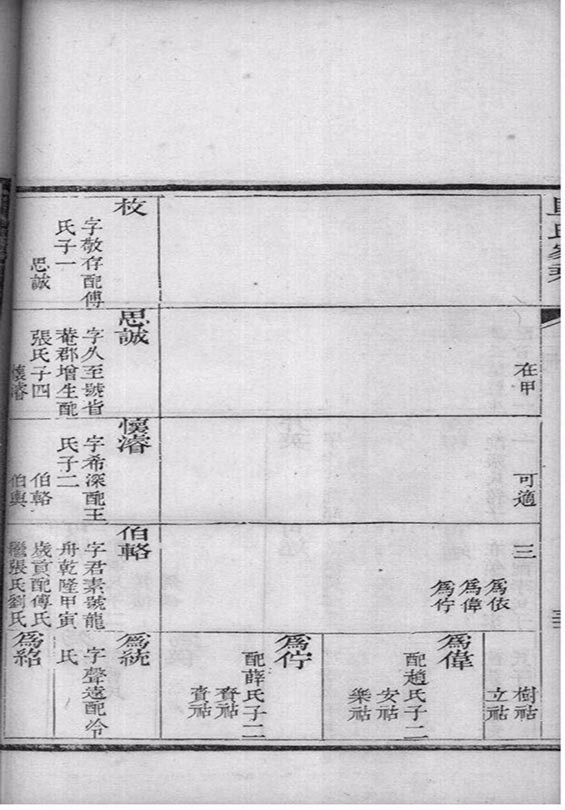 在甲
可適
三
爲依
爲偉
爲佇
樹祜
立祜
爲偉
配趙氏子二
安祜
樂祜
爲佇
配薛氏子二
賚祜
枚
字敬存配傅
氏子一
思誠
思誠
字久至號省
菴郡增生配
張氏子四
懷濬
懷濬
字希深配王
氏子二
伯輅
伯輿
伯輅
字君素號龍
舟乾隆甲寅
歲貢配傅氏
繼張氏劉氏
爲統
字聲遠配冷
氏
爲紹